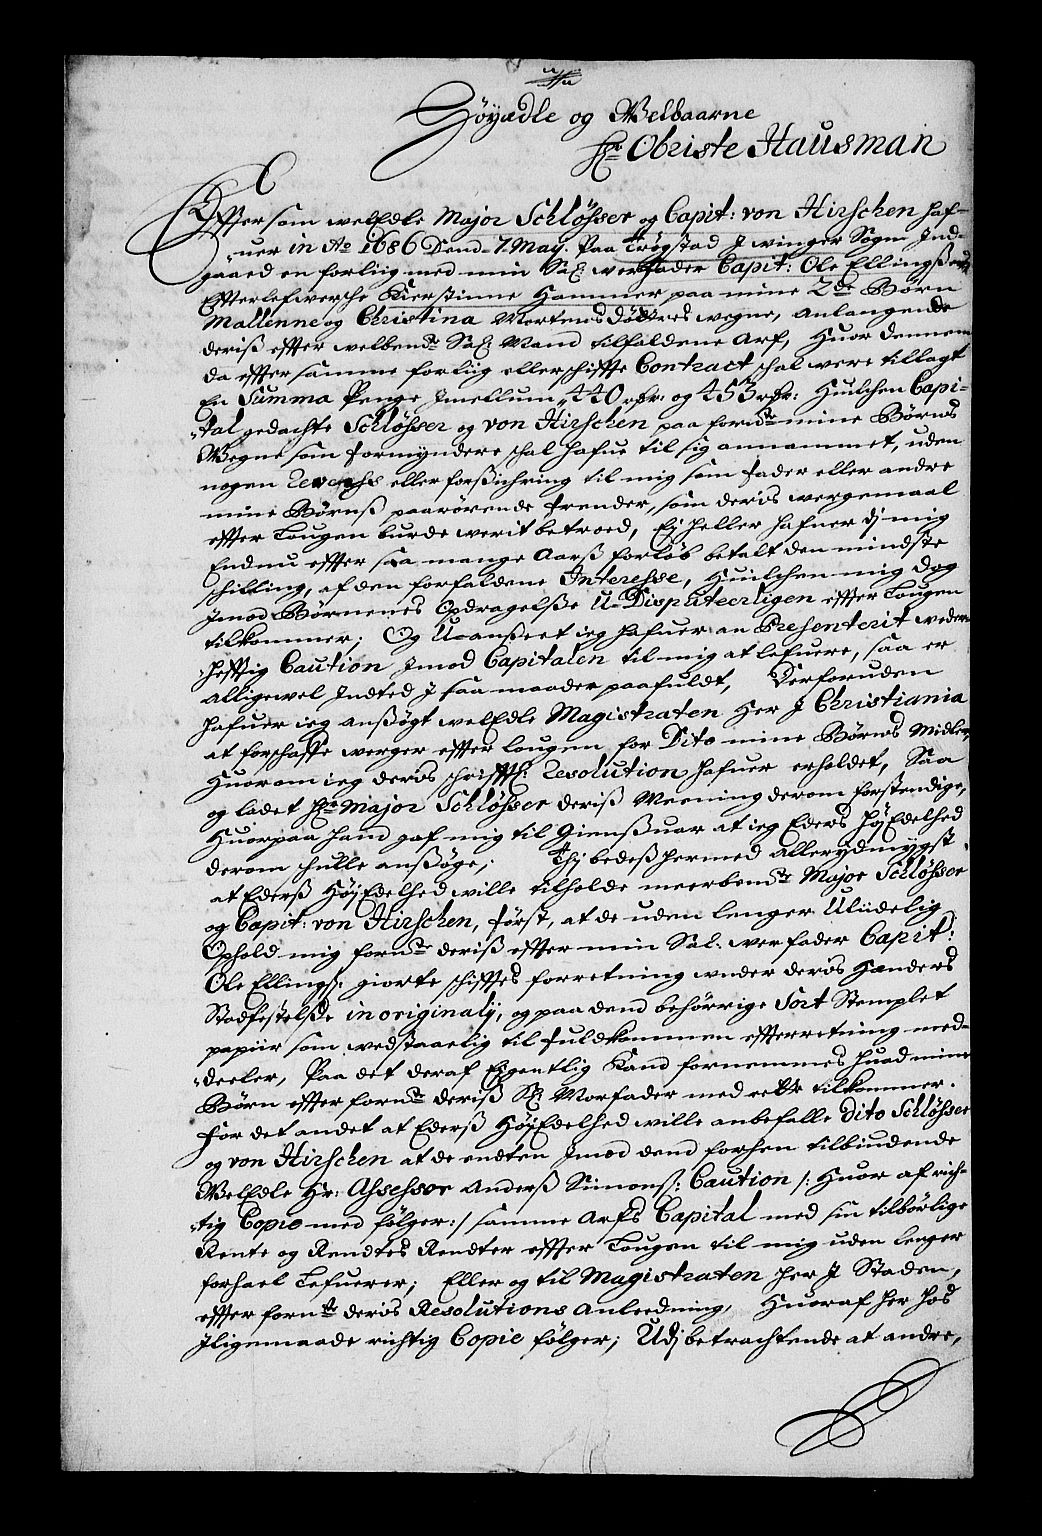 Höyædle og Welbaarne
Hr: Obriste Hausman
Effter som welEdle Major Schlösser og Capit: von Hirschen haf-
uer in Ao 1686 Dend 7. May. Paa Trögstad J winger Sogn Ind-
gaaed en forliig med min Sal: werfader Capit: Ole Ellingssens
Effterlefwersche Kierstinne Hammer paa mine 2de Börn
Mallenne og Christina Mortensdöttres wegne, anlangende
deriß effter welbemte Sal: Mand tilfaldene Arf, Huor dennem
da effter samme forliig eller schiffte Contract schal were tillagt
En Summa Penge Jmellum 440 rdr: og 453 rdr: Huilchen Capi-
tal gedachte Schlösser og von Hirschen paa fornte mine Börns
Wegne som formyndere schal hafue til sig annammet, uden
nogen Reverhs eller forßichring til mig som fader eller andre
mine Börnß paarörende frender, som deris wergemaal
effter Lougen burde werit betroed, Ej heller hafuer dj mig
Endnu effter saa mange Aarß forlöb betalt den mindste
schilling, af den forfaldene Interesse, Huilchen mig dog
Jmod Börnenes Opdragelße U-Disputeerligen effter Lougen
tilkommer; Og U-anßeet ieg hafuer an Presenterit weder-
hefftig Caution Jmod Capitalen til mig at lefuere, saa er
alligewel Indted J saa maader paafuldt, Derforuden
hafuer ieg anßögt welEdle Magistraten Her J Christiania
at forschaffe werger effter lougen for Dito mine Börns Midler,
Huorom ieg deris schrifftl: Resolution hafuer erholdet, Saa
og ladet Hr: Major Schlösser deriß Meening derom forstendige,
Huorpaa hand gaf mig til Gienßuar at ieg Eders HöjEdelhed
derom schulle anßöge; Thj bedeß hermed allerydmygst
at Ederß HöjEdelhed wille tilholde meerbemte Major Schlösser
og Capit: von Hirschen, först, at de uden lenger Uliidelig
Ophold mig fornte deriß effter min Sal: werfader Capit:
Ole Ellings: giorte schifftes forretning under deris Hænders
Stadfestelße in originalj, og paa dend behörrige Sort Stemplet
papiir som wedstaaelig til fuldkommen effterretning med-
deeler, Paa det deraf Egentlig Kand fornemmes huad mine
Börn effter fornte deriß Sl: Morfader med rette tilkommer.
For det andet at Ederß HöjEdelhed wille anbefalle Dito Schlösser
og von Hirschen at de endten Jmod dend forhen tilbiudende
WelEdle Hr: Assessor Anderß Simons: Caution /: Huor af rich-
tig Copie med fölger :/ samme Arfs Capital med sin tilbörlige
Rente og Rendtes Rendter effter Lougen til mig uden lenger
forhael Lefuerer; Eller og til Magistraten her J Staden,
effter fornte deris Resolutions Anleedning, Huoraf her hos
Jligemaade richtig Copie fölger; Udj betrachtende at andre,